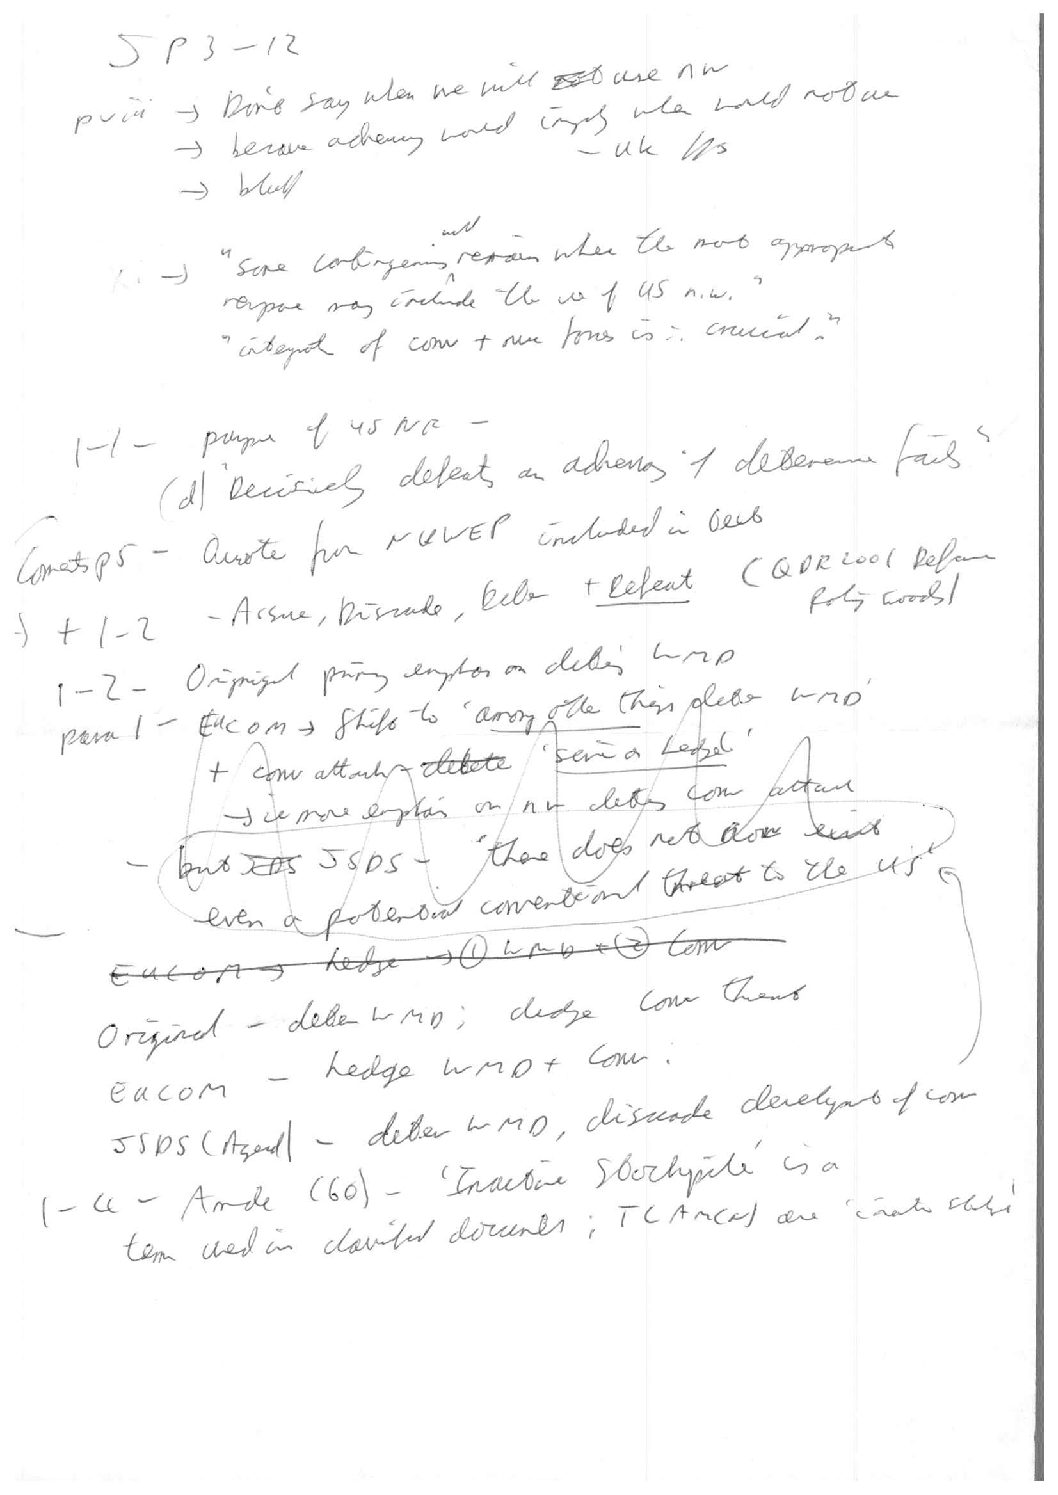 JP3-12
pviii → Don't say when we will not use nw
→ because adversary would imply when would not use
- UK
→ bluff
"Some contingencies will remain where the most appropriate
response may include the use of US n.w."
"integrat of conv + nuc forces is ∴ crucial."
1-1 - purpose of US NF -
(d) "Decisively defeats an adversary if deterrence fails"
Comments p5 - Quote from NUWEP included in
→ + 1-2 - Assure, Dissuade, Deter + Defeat (QDR 2001 Defense
Policy Goals)
1-2 - Original primary emphasis on deterring WMD
para 1 - EUCOM → Shifts to 'among other things deter WMD'
+ conv attack - delete 'serve as hedge'
→ ie more emphasis on nw deterring conv attack
- but JSDS - 'there does not now exist
even a potential conventional threat to the US'
EUCOM → hedge → ① WMD + ② Conv
Original - deter WMD; hedge conv threat
EUCOM - hedge WMD + Conv.
JSDS (Agreed) - deter WMD, dissuade development of conv
1-4 - (60) - 'Inactive Stockpile' is a
term used in classified documents; TLAM(N) are